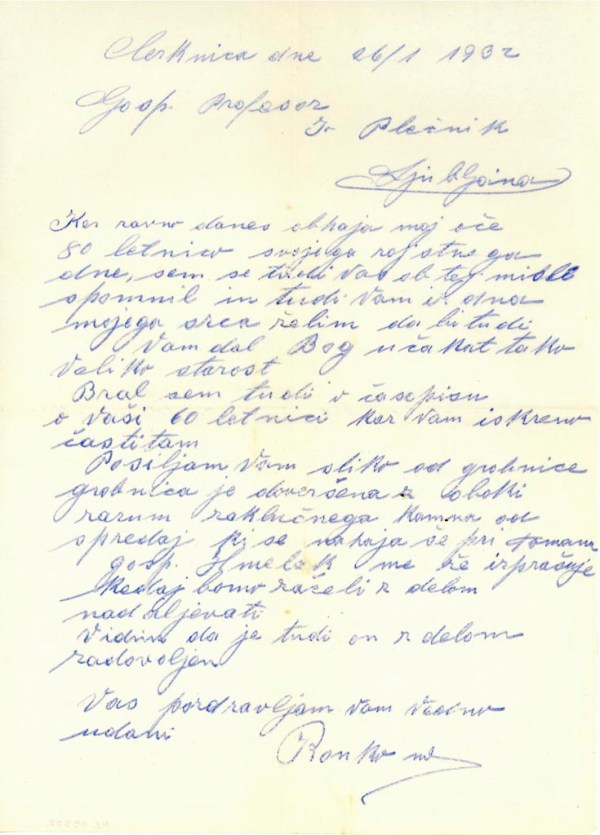 Cerknica dne 26/1 1932
Gosp. Profesor
Iv Plečnik
Ljubljana
Ker ravno danes obhaja moj oče
80 letnico svojega rojstnega
dne, sem se tudi Vas ob tej misli
spomnil in tudi Vam iz dna
mojega srca želim da bi tudi
Vam dal Bog učakat tako
veliko starost
Bral sem tudi v časopisu
o Vaši 60 letnici kar Vam iskreno
častitam
Posiljam Vam sliko od grobnice
grobnica je doveršena z oboki
razum zaključnega kamna od
spredaj ki se nahaja še pri Tomanu
gosp. Hmelak me že izprašuje
kedaj bomo začeli z delom
nadaljevati
Vidim da je tudi on z delom
zadovoljen
Vas pozdravljam Vam Vedno
udani
Ronko